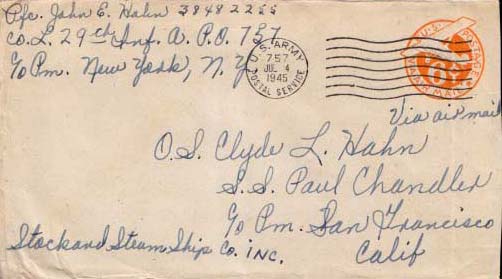 Pfc. John E. Hahn 38482255
Co. L. 29th Inf. A. P. O. 757
c/o Pm. New York, N. Y
U. S. ARMY
757
JUL 4
1945
POSTAL SERVICE
U.S. POSTAGE
6¢
VIA AIR MAIL
Via air mail
O. S. Clyde L. Hahn
S. S. Paul Chandler
c/o Pm. San Francisco
Calif
Stockand Steam Ship Co. INC.